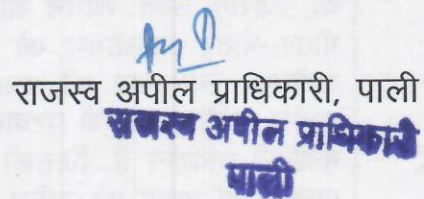 राजस्व अपील प्राधिकारी, पाली
राजस्व अपील प्राधिकारी
पाली